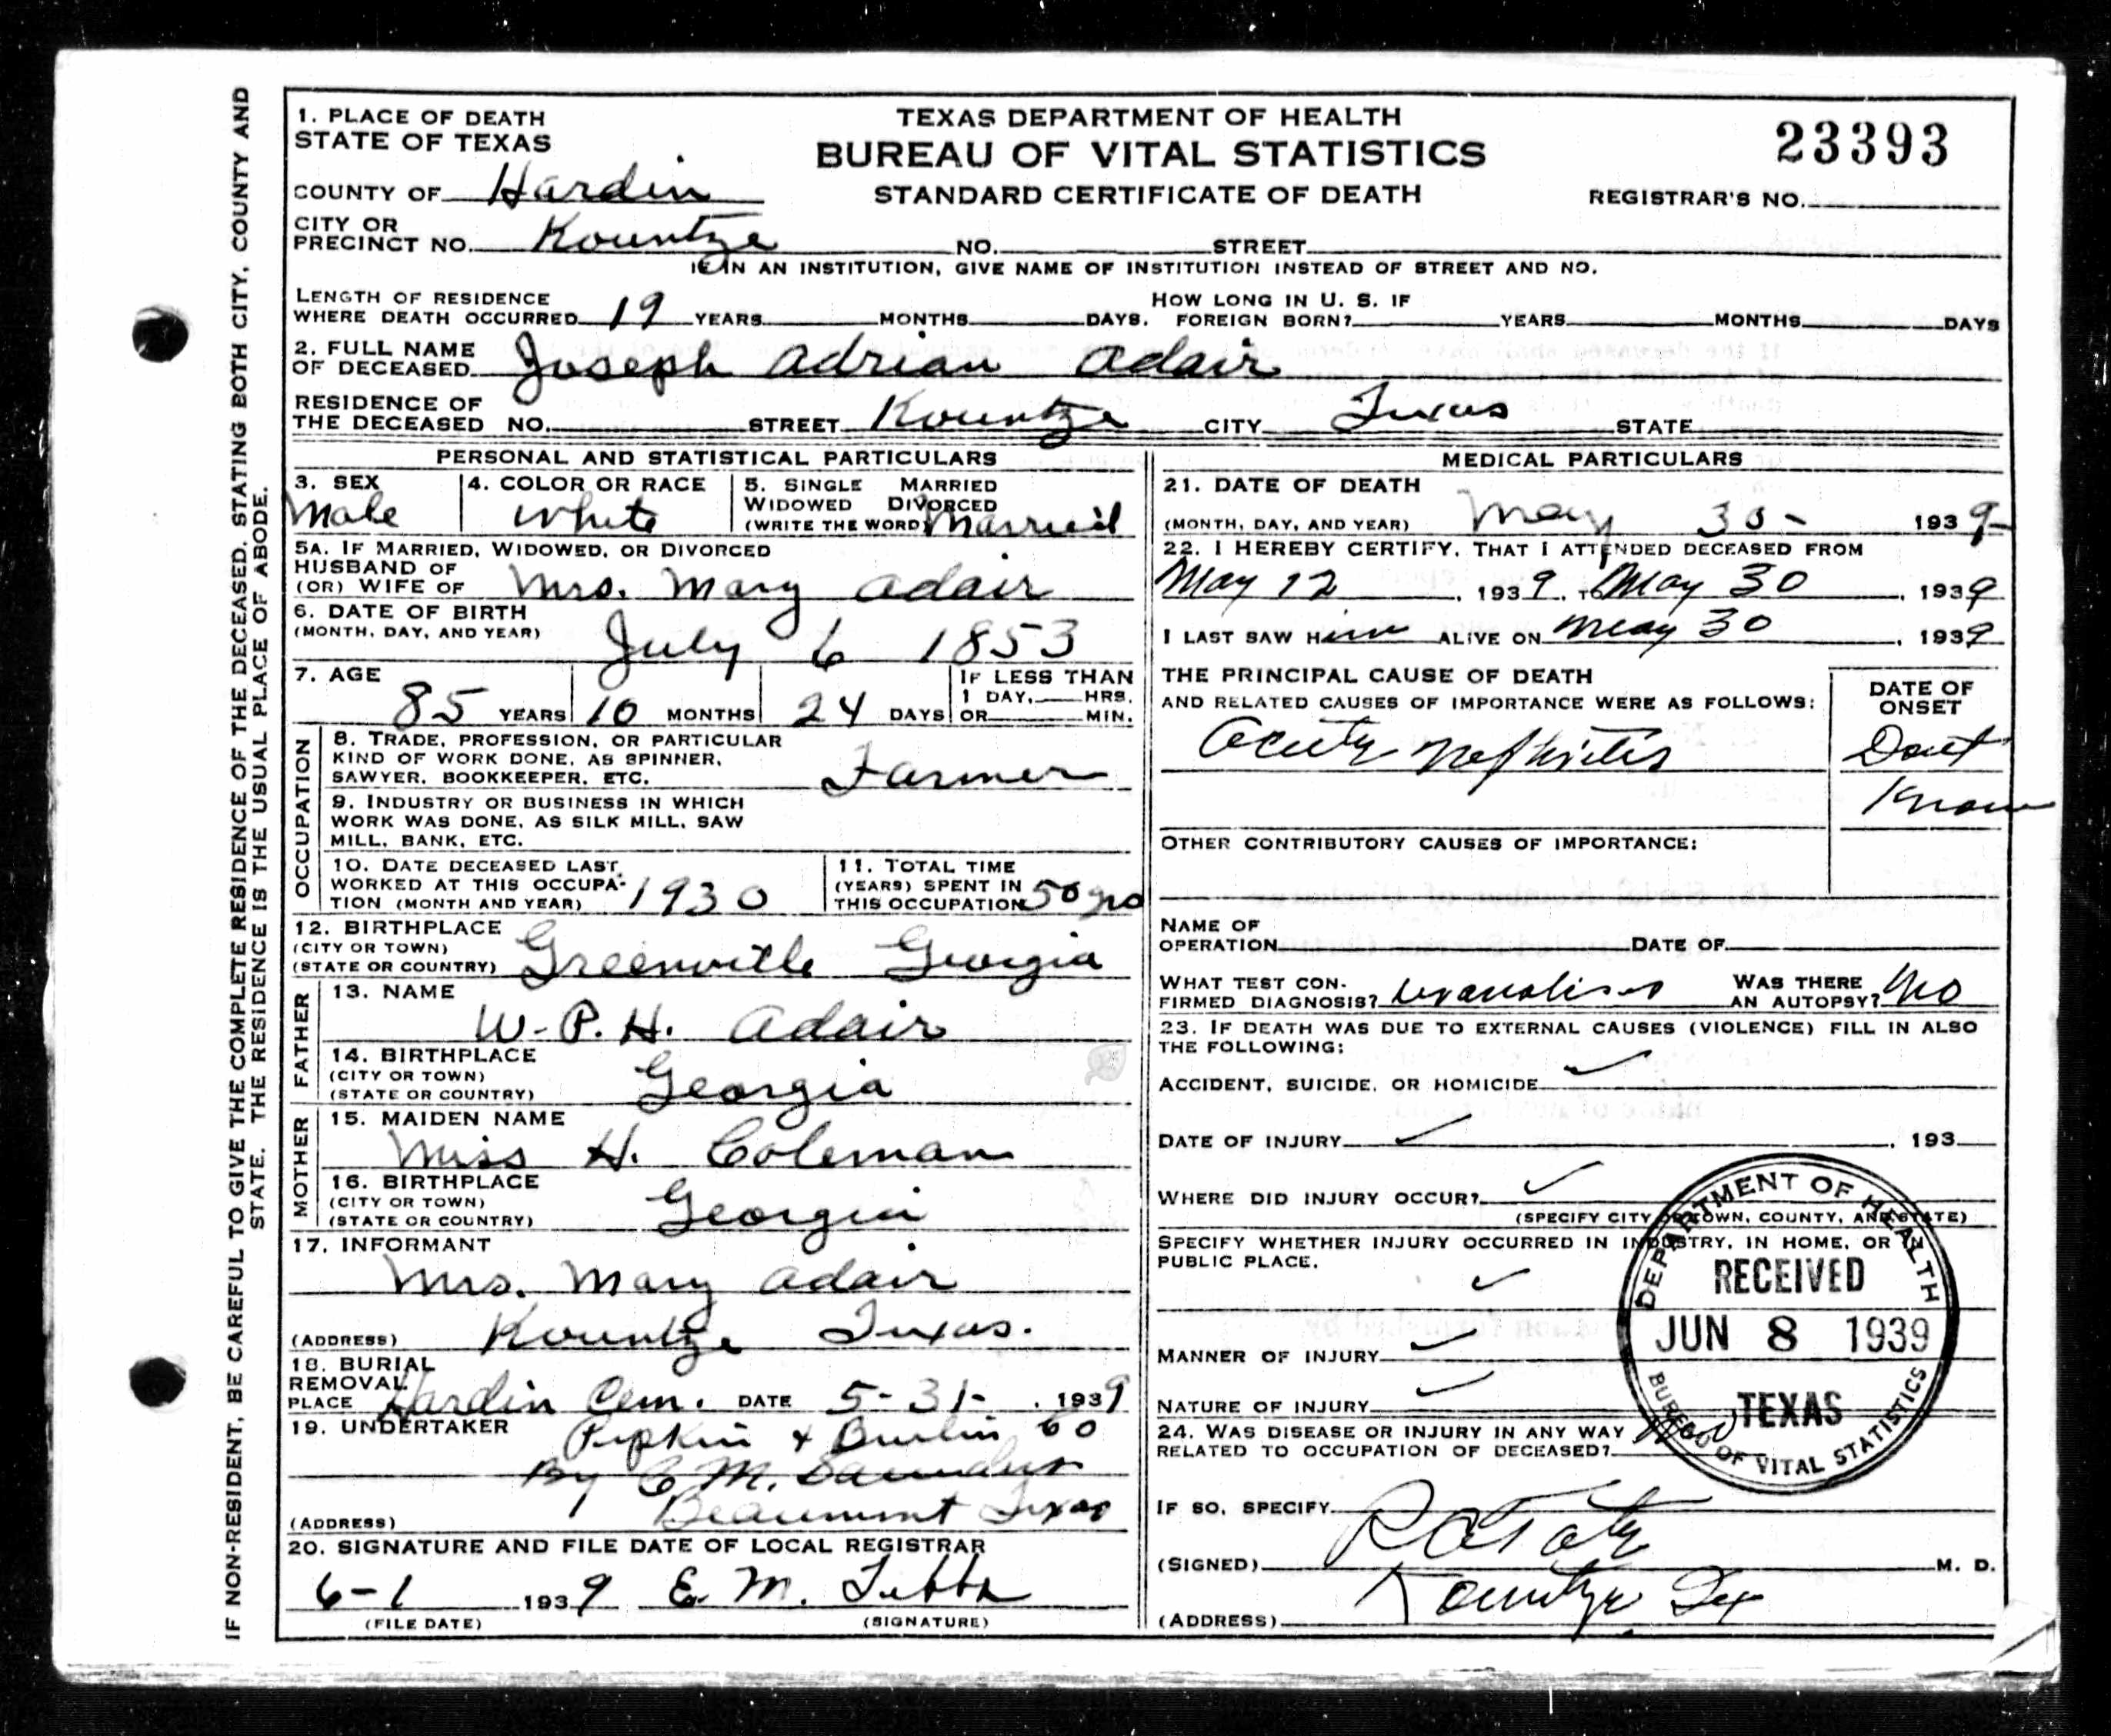 IF NON-RESIDENT, BE CAREFUL TO GIVE THE COMPLETE RESIDENCE OF THE DECEASED, STATING BOTH CITY, COUNTY AND
STATE. THE RESIDENCE IS THE USUAL PLACE OF ABODE.
1. PLACE OF DEATH
STATE OF TEXAS
COUNTY OF Hardin
CITY OR
PRECINCT NO. Kountze NO. STREET
TEXAS DEPARTMENT OF HEALTH
BUREAU OF VITAL STATISTICS
STANDARD CERTIFICATE OF DEATH
23393
REGISTRAR'S NO.
IF IN AN INSTITUTION, GIVE NAME OF INSTITUTION INSTEAD OF STREET AND NO.
LENGTH OF RESIDENCE
WHERE DEATH OCCURRED 19 YEARS MONTHS DAYS.
HOW LONG IN U. S. IF
FOREIGN BORN? YEARS MONTHS DAYS
2. FULL NAME
OF DECEASED Joseph Adrian Adair
RESIDENCE OF
THE DECEASED NO. STREET Kountze CITY Texas STATE
PERSONAL AND STATISTICAL PARTICULARS
3. SEX
Male
4. COLOR OR RACE
White
5. SINGLE MARRIED
WIDOWED DIVORCED
(WRITE THE WORD) Married
5A. IF MARRIED, WIDOWED, OR DIVORCED
HUSBAND OF
(OR) WIFE OF Mrs. Mary Adair
6. DATE OF BIRTH
(MONTH, DAY, AND YEAR) July 6 1853
7. AGE
85 YEARS 10 MONTHS 24 DAYS
IF LESS THAN
1 DAY, HRS.
OR MIN.
OCCUPATION
8. TRADE, PROFESSION, OR PARTICULAR
KIND OF WORK DONE, AS SPINNER,
SAWYER, BOOKKEEPER, ETC. Farmer
9. INDUSTRY OR BUSINESS IN WHICH
WORK WAS DONE, AS SILK MILL, SAW
MILL, BANK, ETC.
10. DATE DECEASED LAST
WORKED AT THIS OCCUPA-
TION (MONTH AND YEAR) 1930
11. TOTAL TIME
(YEARS) SPENT IN
THIS OCCUPATION 50 yrs
12. BIRTHPLACE
(CITY OR TOWN)
(STATE OR COUNTRY) Greenville Georgia
FATHER
13. NAME
W. P. H. Adair
14. BIRTHPLACE
(CITY OR TOWN)
(STATE OR COUNTRY) Georgia
MOTHER
15. MAIDEN NAME
Miss H. Coleman
16. BIRTHPLACE
(CITY OR TOWN)
(STATE OR COUNTRY) Georgia
17. INFORMANT
Mrs. Mary Adair
(ADDRESS) Kountze Texas.
18. BURIAL
REMOVAL
PLACE Hardin Cem. DATE 5-31- 1939
19. UNDERTAKER Pipkin & Brulin Co
By C M. Saunders
(ADDRESS) Beaumont Texas
20. SIGNATURE AND FILE DATE OF LOCAL REGISTRAR
6-1 1939 E. M. Tebbs
(FILE DATE) (SIGNATURE)
MEDICAL PARTICULARS
21. DATE OF DEATH
(MONTH, DAY, AND YEAR) May 30- 1939-
22. I HEREBY CERTIFY, THAT I ATTENDED DECEASED FROM
May 12, 1939, TO May 30, 1939
I LAST SAW Him ALIVE ON May 30, 1939
THE PRINCIPAL CAUSE OF DEATH
AND RELATED CAUSES OF IMPORTANCE WERE AS FOLLOWS:
DATE OF
ONSET
Acute Nephritis Dont
Know
OTHER CONTRIBUTORY CAUSES OF IMPORTANCE:
NAME OF
OPERATION DATE OF
WHAT TEST CON-
FIRMED DIAGNOSIS? uranalisis
WAS THERE
AN AUTOPSY? No
23. IF DEATH WAS DUE TO EXTERNAL CAUSES (VIOLENCE) FILL IN ALSO
THE FOLLOWING:
ACCIDENT, SUICIDE, OR HOMICIDE ✓
DATE OF INJURY ✓ , 193
WHERE DID INJURY OCCUR? ✓
(SPECIFY CITY OR TOWN, COUNTY, AND STATE)
SPECIFY WHETHER INJURY OCCURRED IN INDUSTRY, IN HOME, OR IN
PUBLIC PLACE.
✓
MANNER OF INJURY ✓
NATURE OF INJURY ✓
24. WAS DISEASE OR INJURY IN ANY WAY
RELATED TO OCCUPATION OF DECEASED?
IF SO, SPECIFY
(SIGNED) M. D.
(ADDRESS) Kountze Tex
DEPARTMENT OF HEALTH
RECEIVED
JUN 8 1939
TEXAS
BUREAU OF VITAL STATISTICS